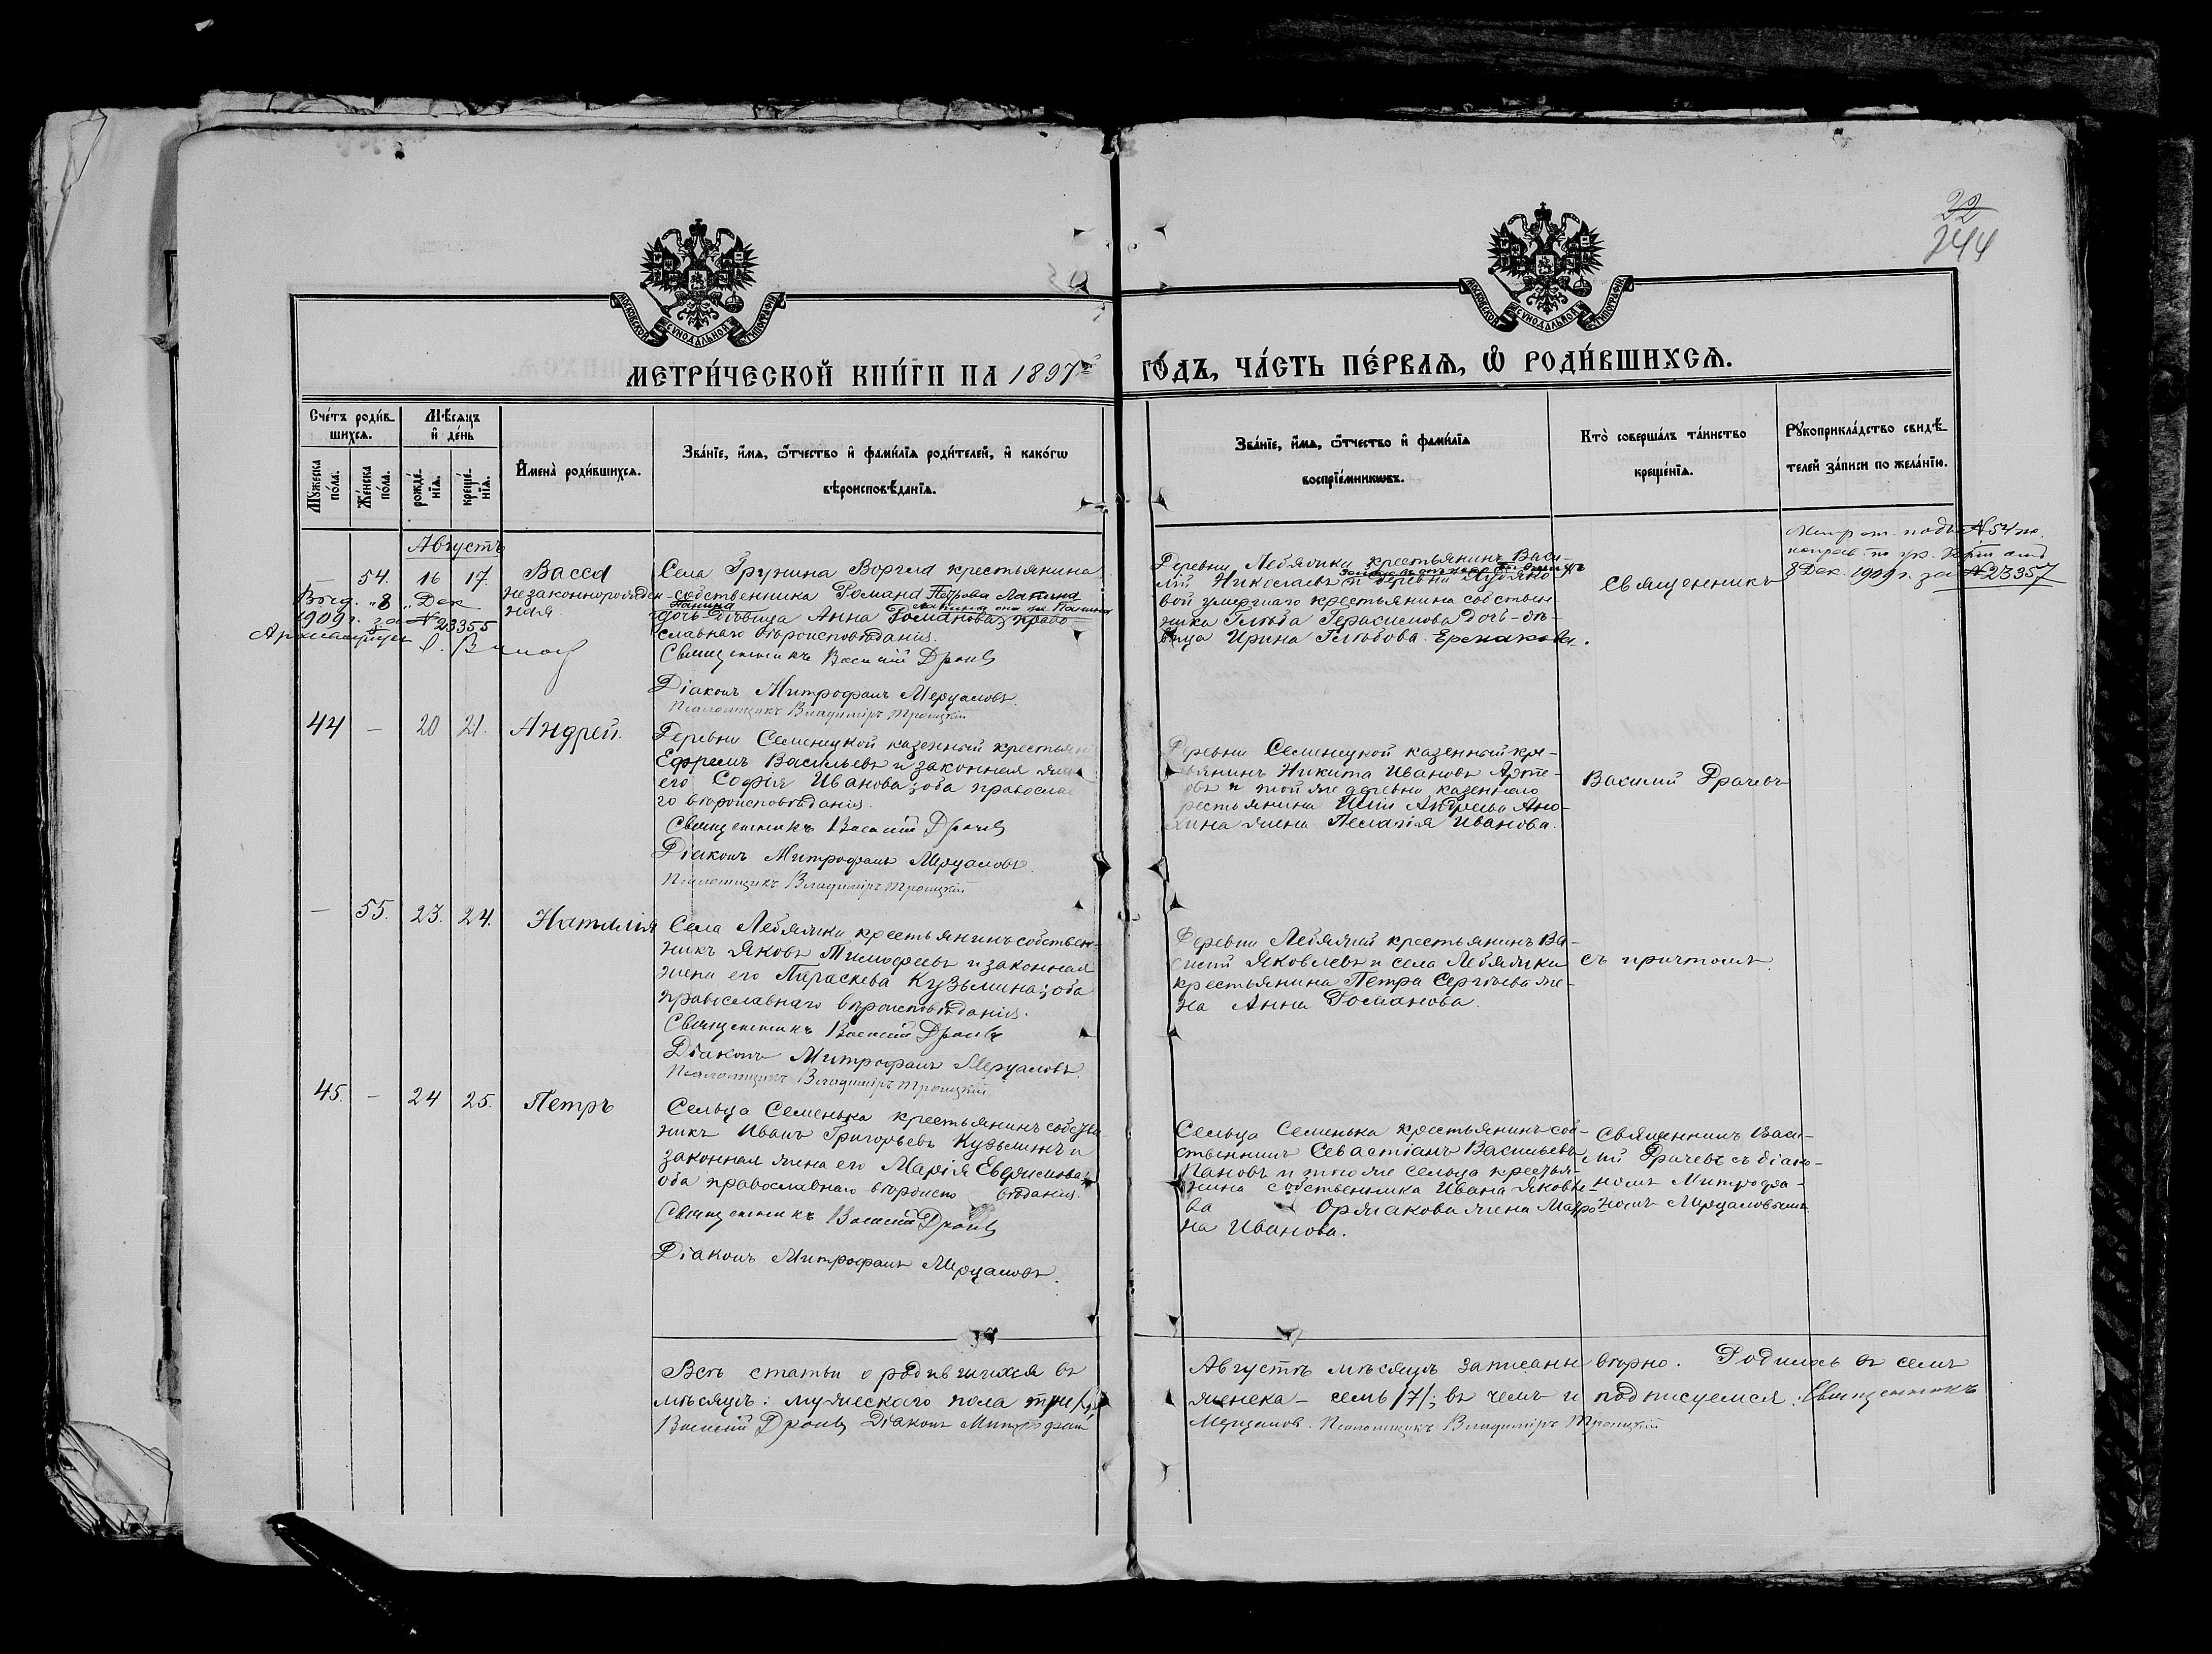 22
244
МОСКОВСКОЙ СѴНОДАЛЬНОЙ ТИПОГРАФІИ
МОСКОВСКОЙ СѴНОДАЛЬНОЙ ТИПОГРАФІИ
МЕТРИ́ЧЕСКОЙ КНИ́ГИ НА 1897й ГО́ДЪ, ЧА́СТЬ ПЕ́РВАѦ, Ѽ РОДИ́ВШИХСѦ.
Сче́тъ роди́в
шихсѧ.
Мѣ́сѧцъ
и҆ де́нь
И҆мена̀ роди́вшихсѧ.
Зва́нїе, и҆́мѧ, ѻ҆́тчество и҆ фами́лїѧ роди́телей, и҆ како́гѡ
вѣроисповѣ́данїѧ.
Мꙋ́жеска
по́ла.
Же́нска
по́ла.
рожде́-
нїѧ.
креще́-
нїѧ.
Зва́нїе, и҆́мѧ, ѻ҆́тчество и҆ фами́лїѧ
воспрїе́мникѡвъ.
Кто̀ соверша́лъ та́инство
креще́нїѧ.
Рꙋкоприкла́дство свидѣ́-
телей за́писи по жела́нїю.
Августъ
54. 16 17.
Васса
незаконнорожден-
ная.
Выд. „8„ Дек
1909 г. за № 23355
Села Грунина Воргла крестьянина
собственника Романа Петрова Лапина
Панина
дочь-дѣвица Анна Романова, право-
славнаго вѣроисповѣданія.
Священникъ Василій Драчевъ
Діаконъ Митрофанъ Мерцаловъ.
Псаломщикъ Владиміръ Троицкій
Деревни Лебяжки крестьянинъ Васи-
лій Николаевъ и деревни
вой умершаго крестьянина собствен
ника Глѣба Герасимова дочь-дѣ-
вица Ирина Глѣбова Ермакова.
Священникъ
подъ № 54 ж.
8 Дек. 1909 г. за № 23357
44 – 20 21. Андрей.
Деревни Семенецкой казенный крестьянинъ
Ефремъ Васильевъ и законная жена
его Софія Иванова; оба православна
го вѣроисповѣданія.
Священникъ Василій Драчевъ
Діаконъ Митрофанъ Мерцаловъ.
Псаломщикъ Владиміръ Троицкій
Деревни Семенецкой казенный кре-
стьянинъ Никита Ивановъ
и той же деревни казеннаго
крестьянина Андреева Ано-
хина жена Пелагія Иванова.
Василій Драчевъ
– 55. 23. 24. Наталія
Села Лебяжки крестьянинъ собствен-
никъ Яковъ Тимофеевъ и законная
жена его Параскева Кузьмина; оба
православнаго вѣроисповѣданія.
Священникъ Василій Драчевъ
Діаконъ Митрофанъ Мерцаловъ.
Псаломщикъ Владиміръ Троицкій
Деревни Лебяжки крестьянинъ Ва-
силій Яковлевъ и села Лебяжки
крестьянина Петра Сергѣева же-
на Анна Романова.
съ причтомъ.
45. – 24 25. Петръ
Сельца Семенька крестьянинъ собстве-
никъ Иванъ Григорьевъ Кузьминъ и
законная жена его Марія Евфимова,
оба православнаго вѣроиспо вѣданія.
Священникъ Василій Драчевъ
Діаконъ Митрофанъ Мерцаловъ.
Сельца Семенька крестьянинъ соб-
ственникъ Севастіанъ Васильевъ
Пановъ и того же сельца крестья-
нина собственника Ивана Яковле-
ва Ормакова жена Матро-
на Иванова.
Священникъ Васи-
лій Драчевъ съ діако-
номъ Митрофа-
номъ Мерцаловымъ
Всѣ статьи о родившихся въ Августѣ мѣсяцѣ записаны вѣрно. Родилось въ семъ
мѣсяцѣ: мужескаго пола три /3/, женска – семь /7/; въ чемъ и подписуемся: Священникъ
Василій Драчевъ Діаконъ Митрофанъ Мерцаловъ. Псаломщикъ Владиміръ Троицкій